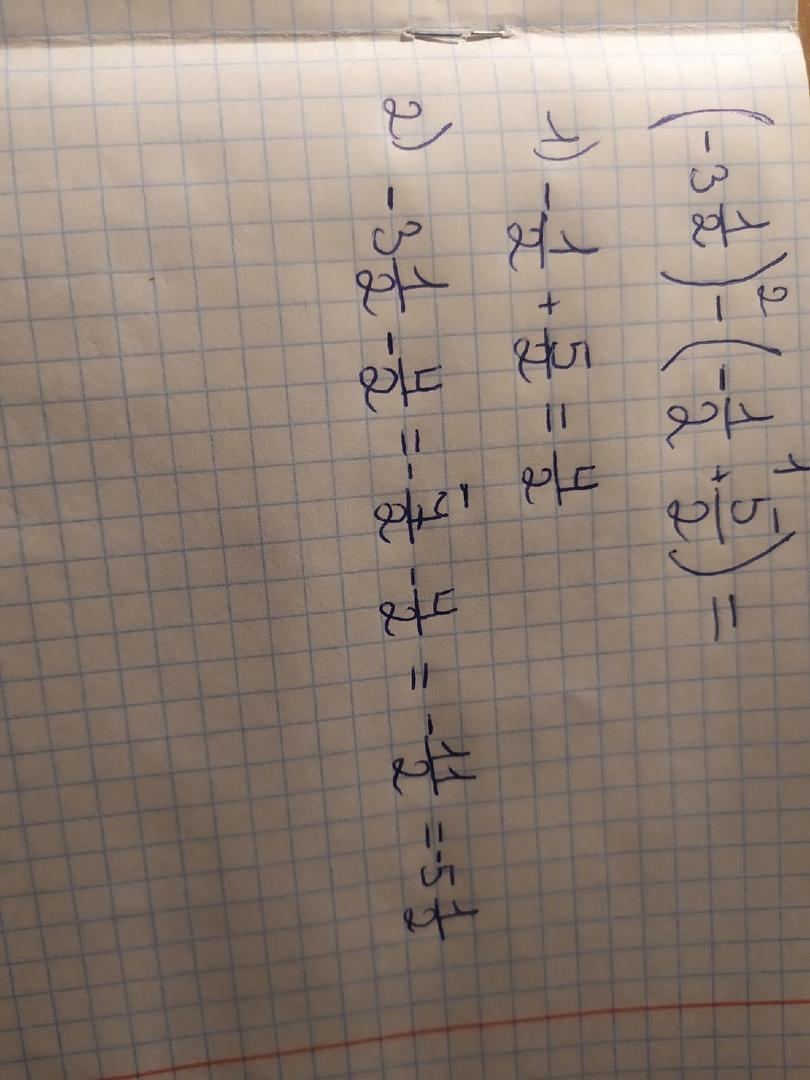 2 1
(-3 1/2) - (-1/2 + 5/2) =
1) -1/2 + 5/2 = 4/2
2) -3 1/2 - 4/2 = -7/2 - 4/2 = -11/2 = -5 1/2